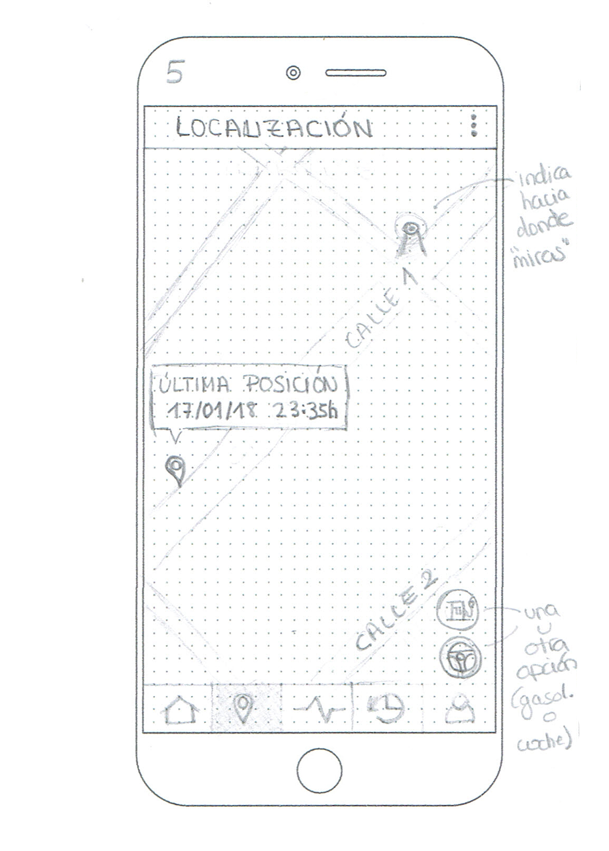 5
LOCALIZACIÓN
indica
hacia
donde
"miras"
CALLE 1
ÚLTIMA POSICIÓN
17/01/18 23:35h
CALLE 2
una
u
otra
opción
(gasol.
o
coche)